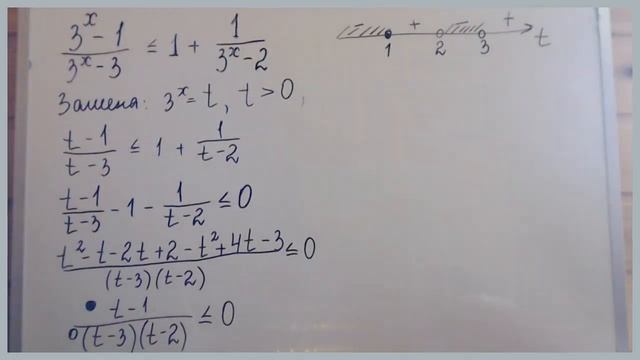 (3^x - 1)/(3^x - 3) ≤ 1 + 1/(3^x - 2)
Замена: 3^x = t, t > 0,
(t - 1)/(t - 3) ≤ 1 + 1/(t - 2)
(t - 1)/(t - 3) - 1 - 1/(t - 2) ≤ 0
(t² - t - 2t + 2 - t² + 4t - 3)/((t - 3)(t - 2)) ≤ 0
(t - 1)/((t - 3)(t - 2)) ≤ 0
- + - +
1 2 3 t